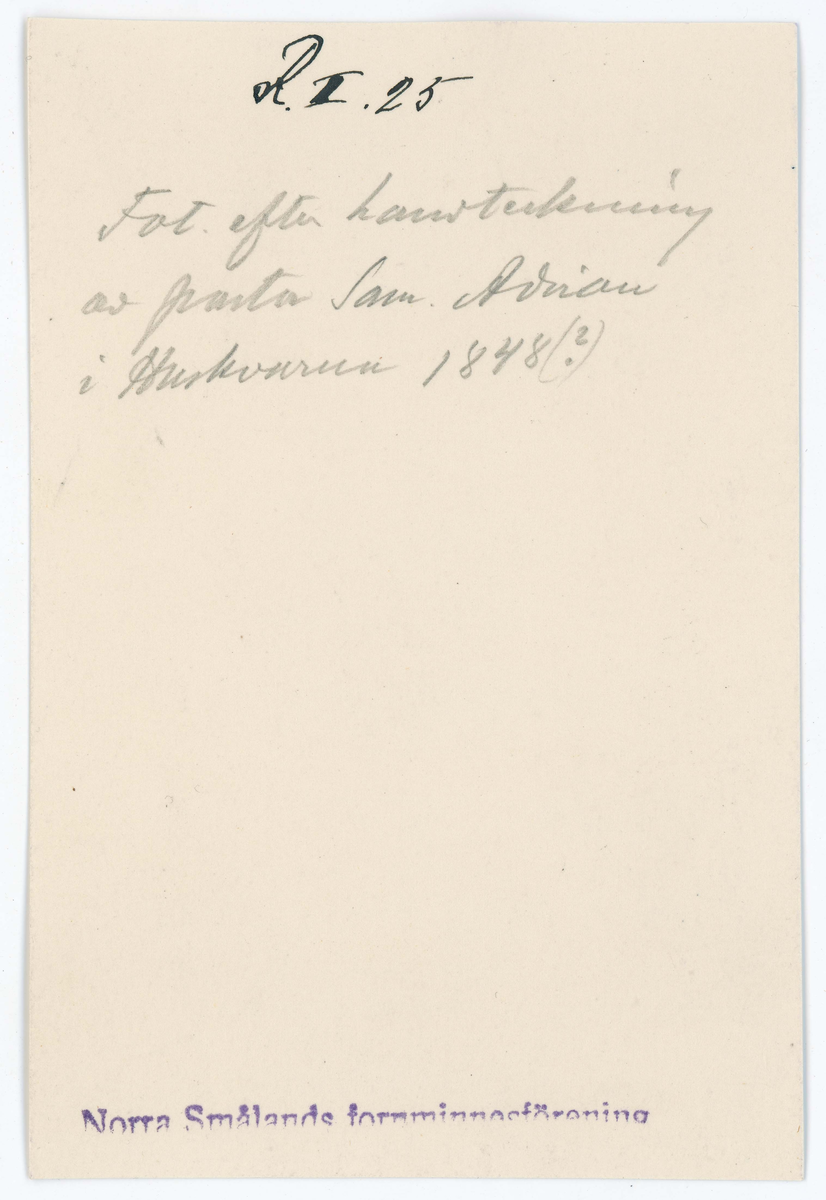 R. II. 25
Fot. efter handteckning
av pastor Sam. Adrian
i Huskvarna 1848(?)
Norra Smålands fornminnesförening